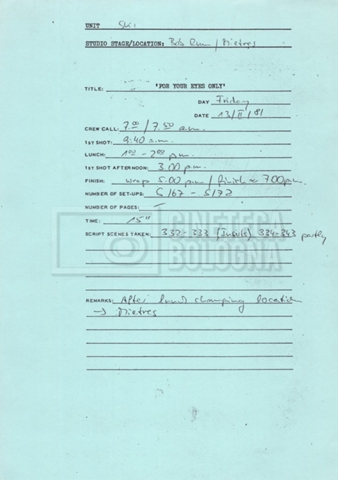 UNIT Ski
STUDIO STAGE/LOCATION: Bob Run / Pietres
TITLE: 'FOR YOUR EYES ONLY'
DAY Friday
DATE 13/II/81
CREW CALL: 7.00 / 7.50 a.m.
1ST SHOT: 9:40 a.m.
LUNCH: 1:00 - 2:00 p.m.
1ST SHOT AFTERNOON: 3.00 p.m.
FINISH: wrap 5.00 p.m / finish 7.00 p.m.
NUMBER OF SET-UPS: S/67 - S/72
NUMBER OF PAGES: -
TIME: 15"
SCRIPT SCENES TAKEN: 332-333 (Inserts) 334-343 partly
CINETECA
BOLOGNA
REMARKS: After changing location
→ Pietres